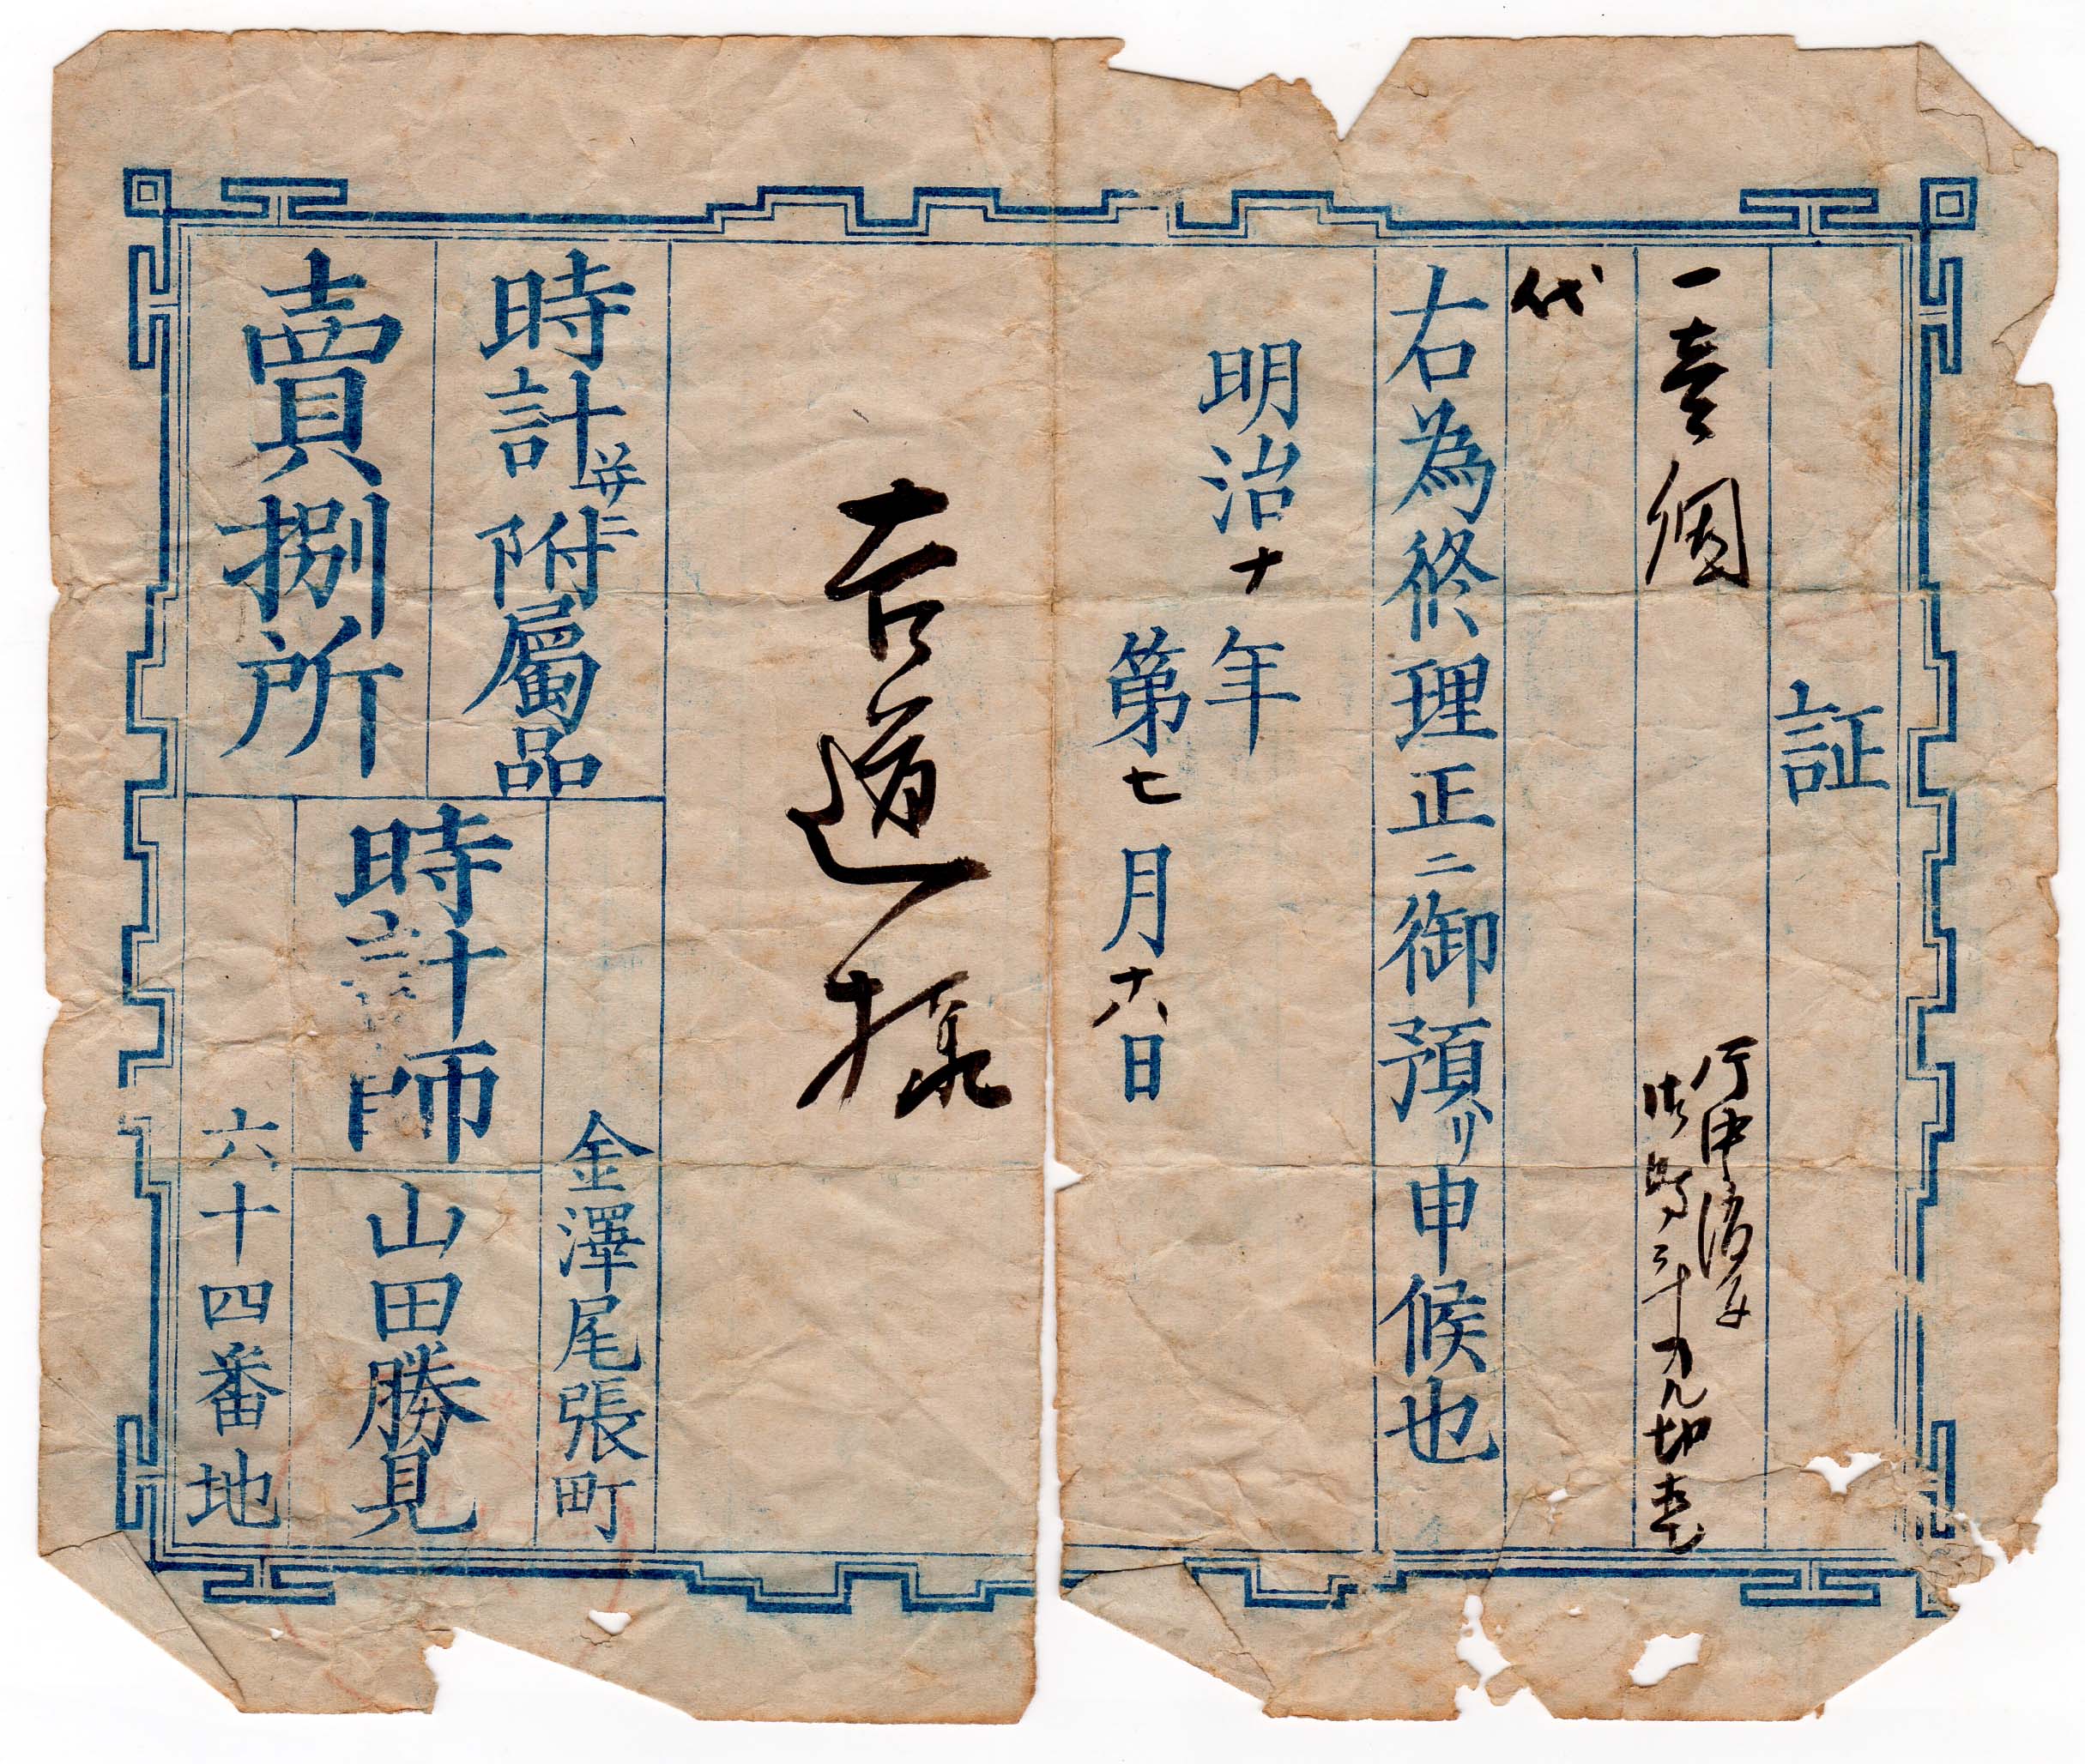 証
一 壱個
代
右為修理正ニ御預リ申候也
明治十年
第七月十六日
吉道様
時計并ニ附屬品
賣捌所
金澤尾張町
時計師 山田勝見
六十四番地